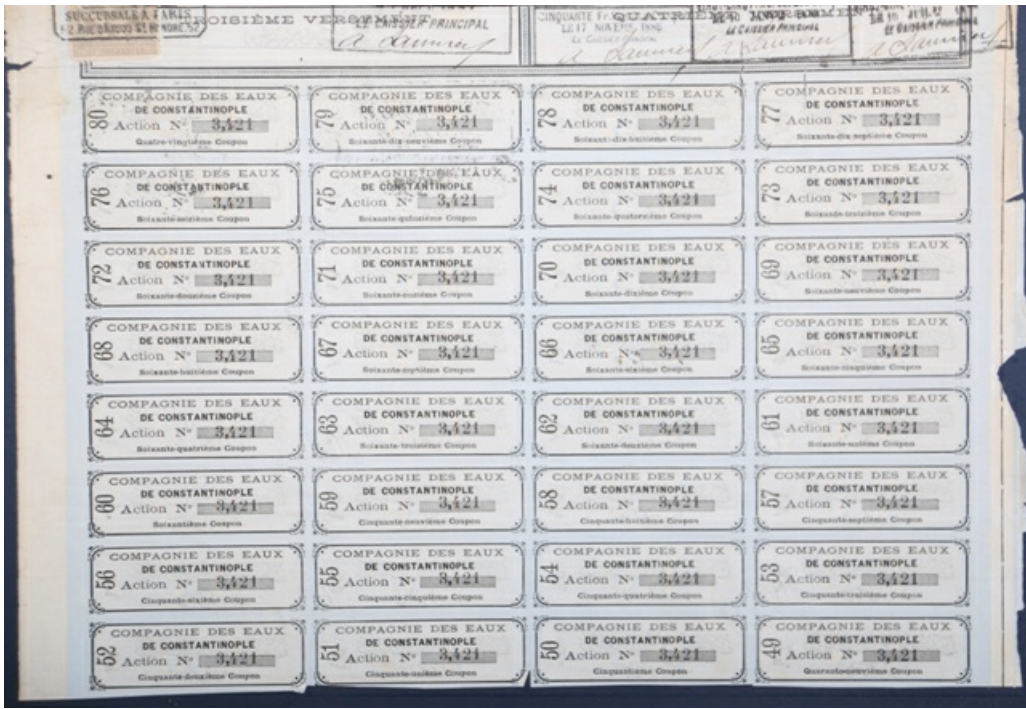 SUCCURSALE A PARIS
TROISIÈME VERSEMENT
LE CAISSIER PRINCIPAL
CINQUANTE Fr.
QUATRIÈME
LE 17 NOVEMB. 1886
LE CAISSIER PRINCIPAL
80 COMPAGNIE DES EAUX
DE CONSTANTINOPLE
Action No 3,421
Quatre-vingtième Coupon
79 COMPAGNIE DES EAUX
DE CONSTANTINOPLE
Action No 3,421
Soixante-dix-neuvième Coupon
78 COMPAGNIE DES EAUX
DE CONSTANTINOPLE
Action No 3,421
Soixante-dix-huitième Coupon
77 COMPAGNIE DES EAUX
DE CONSTANTINOPLE
Action No 3,421
Soixante-dix septième Coupon
76 COMPAGNIE DES EAUX
DE CONSTANTINOPLE
Action No 3,421
Soixante-seizième Coupon
75 COMPAGNIE DES EAUX
DE CONSTANTINOPLE
Action No 3,421
Soixante-quinzième Coupon
74 COMPAGNIE DES EAUX
DE CONSTANTINOPLE
Action No 3,421
Soixante-quatorzième Coupon
73 COMPAGNIE DES EAUX
DE CONSTANTINOPLE
Action No 3,421
Soixante-treizième Coupon
72 COMPAGNIE DES EAUX
DE CONSTANTINOPLE
Action No 3,421
Soixante-douzième Coupon
71 COMPAGNIE DES EAUX
DE CONSTANTINOPLE
Action No 3,421
Soixante-onzième Coupon
70 COMPAGNIE DES EAUX
DE CONSTANTINOPLE
Action No 3,421
Soixante-dixième Coupon
69 COMPAGNIE DES EAUX
DE CONSTANTINOPLE
Action No 3,421
Soixante-neuvième Coupon
68 COMPAGNIE DES EAUX
DE CONSTANTINOPLE
Action No 3,421
Soixante-huitième Coupon
67 COMPAGNIE DES EAUX
DE CONSTANTINOPLE
Action No 3,421
Soixante-septième Coupon
66 COMPAGNIE DES EAUX
DE CONSTANTINOPLE
Action No 3,421
Soixante-sixième Coupon
65 COMPAGNIE DES EAUX
DE CONSTANTINOPLE
Action No 3,421
Soixante-cinquième Coupon
64 COMPAGNIE DES EAUX
DE CONSTANTINOPLE
Action No 3,421
Soixante-quatrième Coupon
63 COMPAGNIE DES EAUX
DE CONSTANTINOPLE
Action No 3,421
Soixante-troisième Coupon
62 COMPAGNIE DES EAUX
DE CONSTANTINOPLE
Action No 3,421
Soixante-deuxième Coupon
61 COMPAGNIE DES EAUX
DE CONSTANTINOPLE
Action No 3,421
Soixante-unième Coupon
60 COMPAGNIE DES EAUX
DE CONSTANTINOPLE
Action No 3,421
Soixantième Coupon
59 COMPAGNIE DES EAUX
DE CONSTANTINOPLE
Action No 3,421
Cinquante-neuvième Coupon
58 COMPAGNIE DES EAUX
DE CONSTANTINOPLE
Action No 3,421
Cinquante-huitième Coupon
57 COMPAGNIE DES EAUX
DE CONSTANTINOPLE
Action No 3,421
Cinquante-septième Coupon
56 COMPAGNIE DES EAUX
DE CONSTANTINOPLE
Action No 3,421
Cinquante-sixième Coupon
55 COMPAGNIE DES EAUX
DE CONSTANTINOPLE
Action No 3,421
Cinquante-cinquième Coupon
54 COMPAGNIE DES EAUX
DE CONSTANTINOPLE
Action No 3,421
Cinquante-quatrième Coupon
53 COMPAGNIE DES EAUX
DE CONSTANTINOPLE
Action No 3,421
Cinquante-troisième Coupon
52 COMPAGNIE DES EAUX
DE CONSTANTINOPLE
Action No 3,421
Cinquante-deuxième Coupon
51 COMPAGNIE DES EAUX
DE CONSTANTINOPLE
Action No 3,421
Cinquante-unième Coupon
50 COMPAGNIE DES EAUX
DE CONSTANTINOPLE
Action No 3,421
Cinquantième Coupon
49 COMPAGNIE DES EAUX
DE CONSTANTINOPLE
Action No 3,421
Quarante-neuvième Coupon